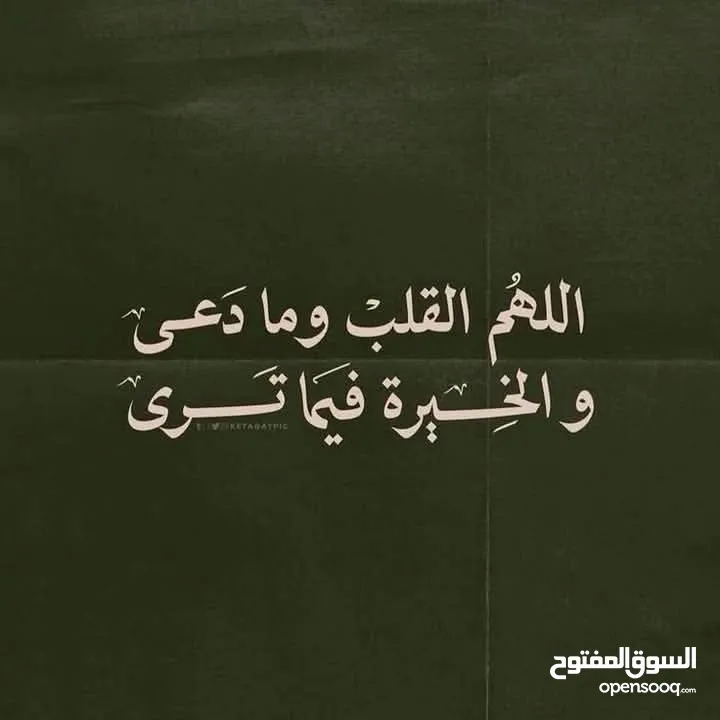 اللهُم القلبْ وما دَعى
و الخِيرة فيَما تَرى
KETABATPIC
السوق المفتوح
opensooq.com